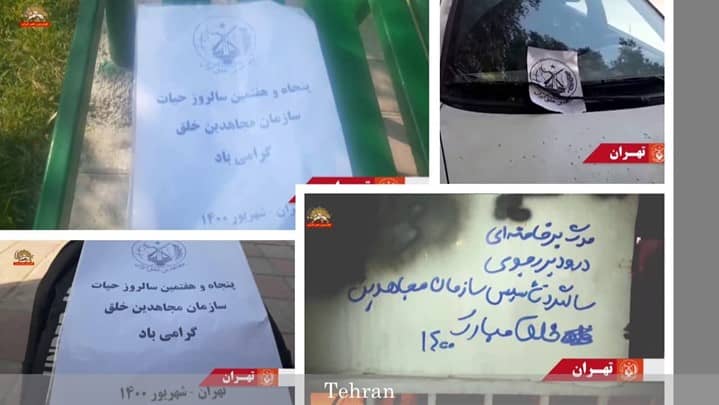 پنجاه و هفتمین سالروز حیات
سازمان مجاهدین خلق
گرامی باد
تهران - شهریور ۱۴۰۰
تهران
تهران
پنجاه و هفتمین سالروز حیات
سازمان مجاهدین خلق
گرامی باد
تهران - شهریور ۱۴۰۰
تهران
مرگ بر خامنه‌ای
درود بر رجوی
سالگرد تأسیس سازمان مجاهدین
خلق مبارک
۱۴۰۰
تهران
Tehran